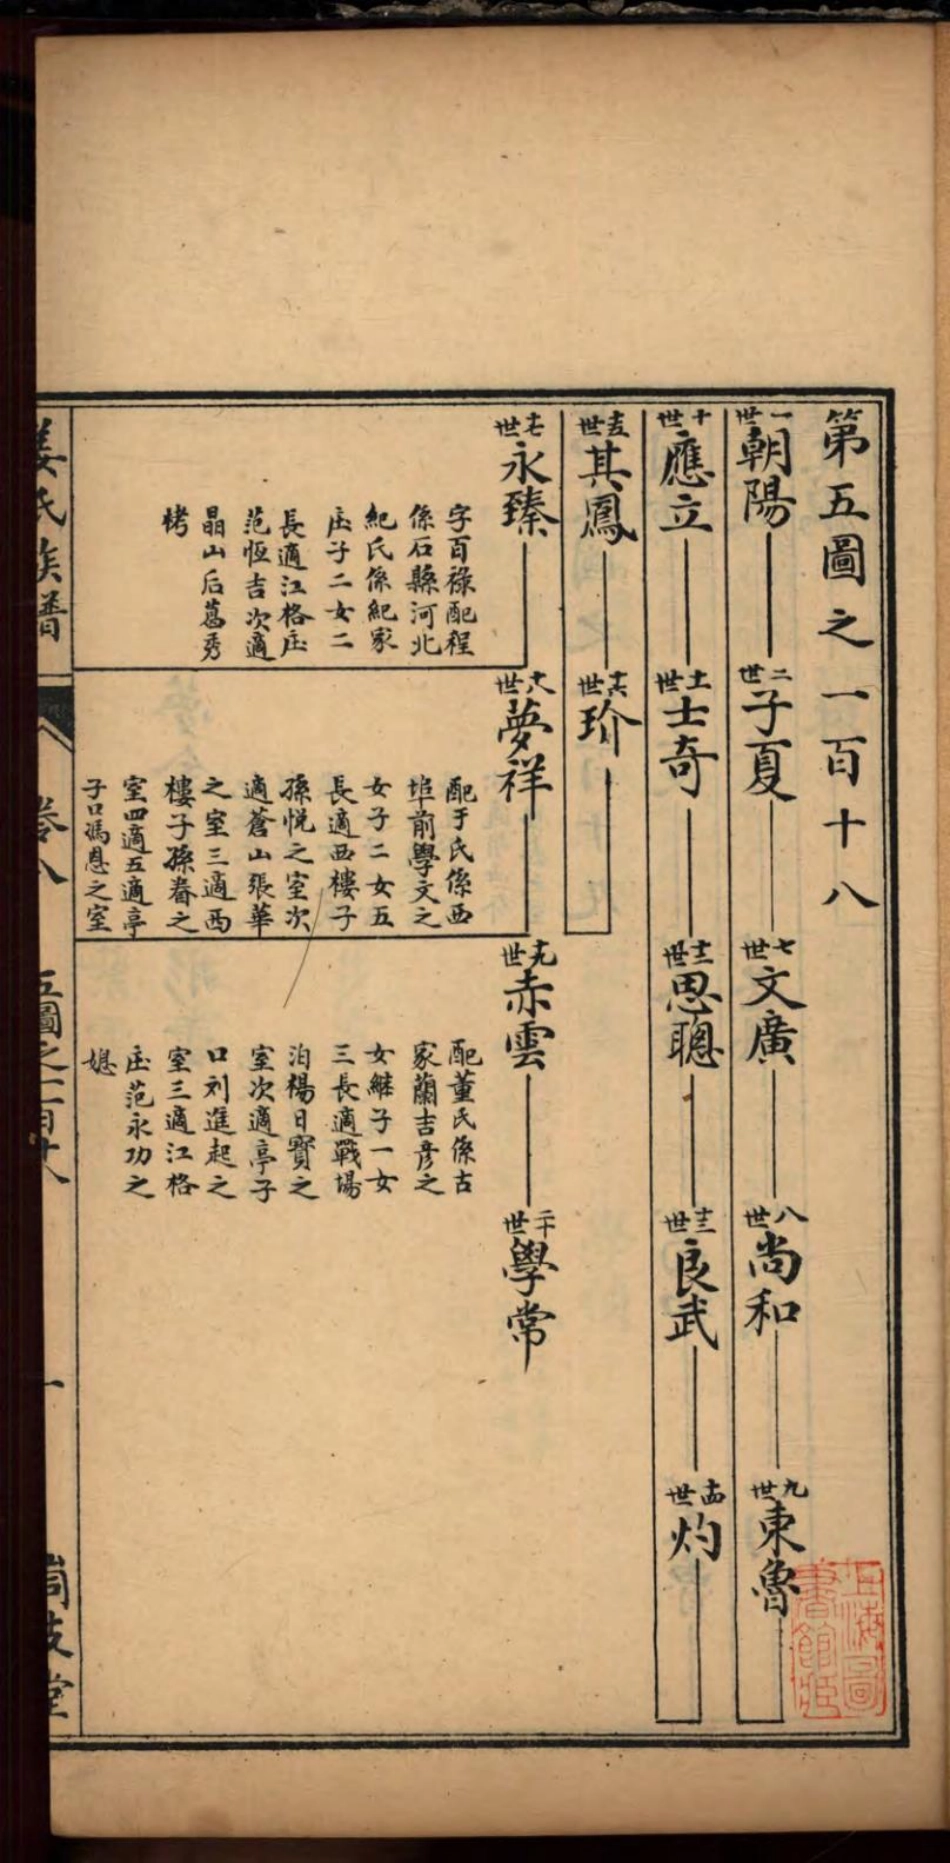 第五圖之一百十八
一世 朝陽
二世 子夏
七世 文廣
八世 尚和
九世 東魯
十世 應立
十一世 士奇
十二世 思聰
十三世 良武
十四世 灼
十五世 其鳳
十六世 玠
十七世 永臻
字百祿配程
係石縣河北
紀氏係紀家
庄子二女二
長適江格庄
范恆吉次適
晶山后葛秀
栲
十八世 夢祥
配于氏係西
埠前學文之
女子二女五
長適西樓子
孫悅之室次
適蒼山張華
之室三適西
樓子孫眷之
室四適五適亭
子口馮恩之室
十九世 赤雲
配董氏係古
家蘭吉彥之
女繼子一女
三長適戰場
泊楊日寶之
室次適亭子
口刘進起之
室三適江格
庄范永功之
媳
二十世 學常
姜氏族譜
卷八
五圖之一百十八
一
上海圖
書館藏